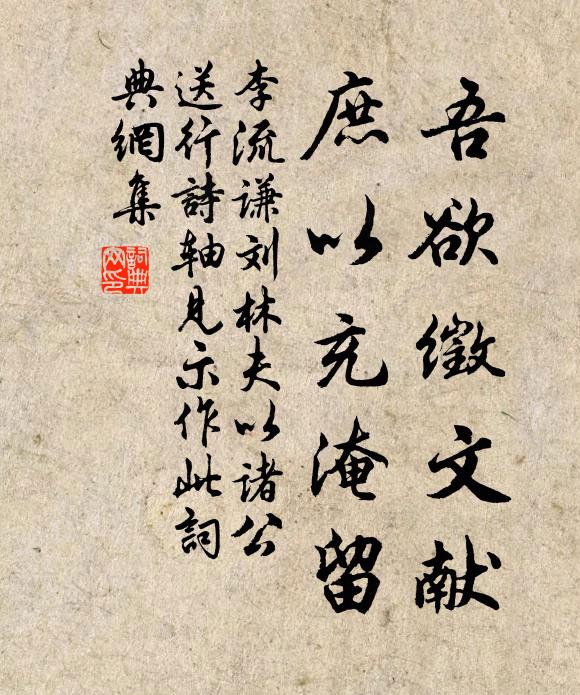 吾欲徵文献
庶以充淹留
李流谦刘林夫以诸公
送行詩軸見示作此詞
典網集
詞典
网印